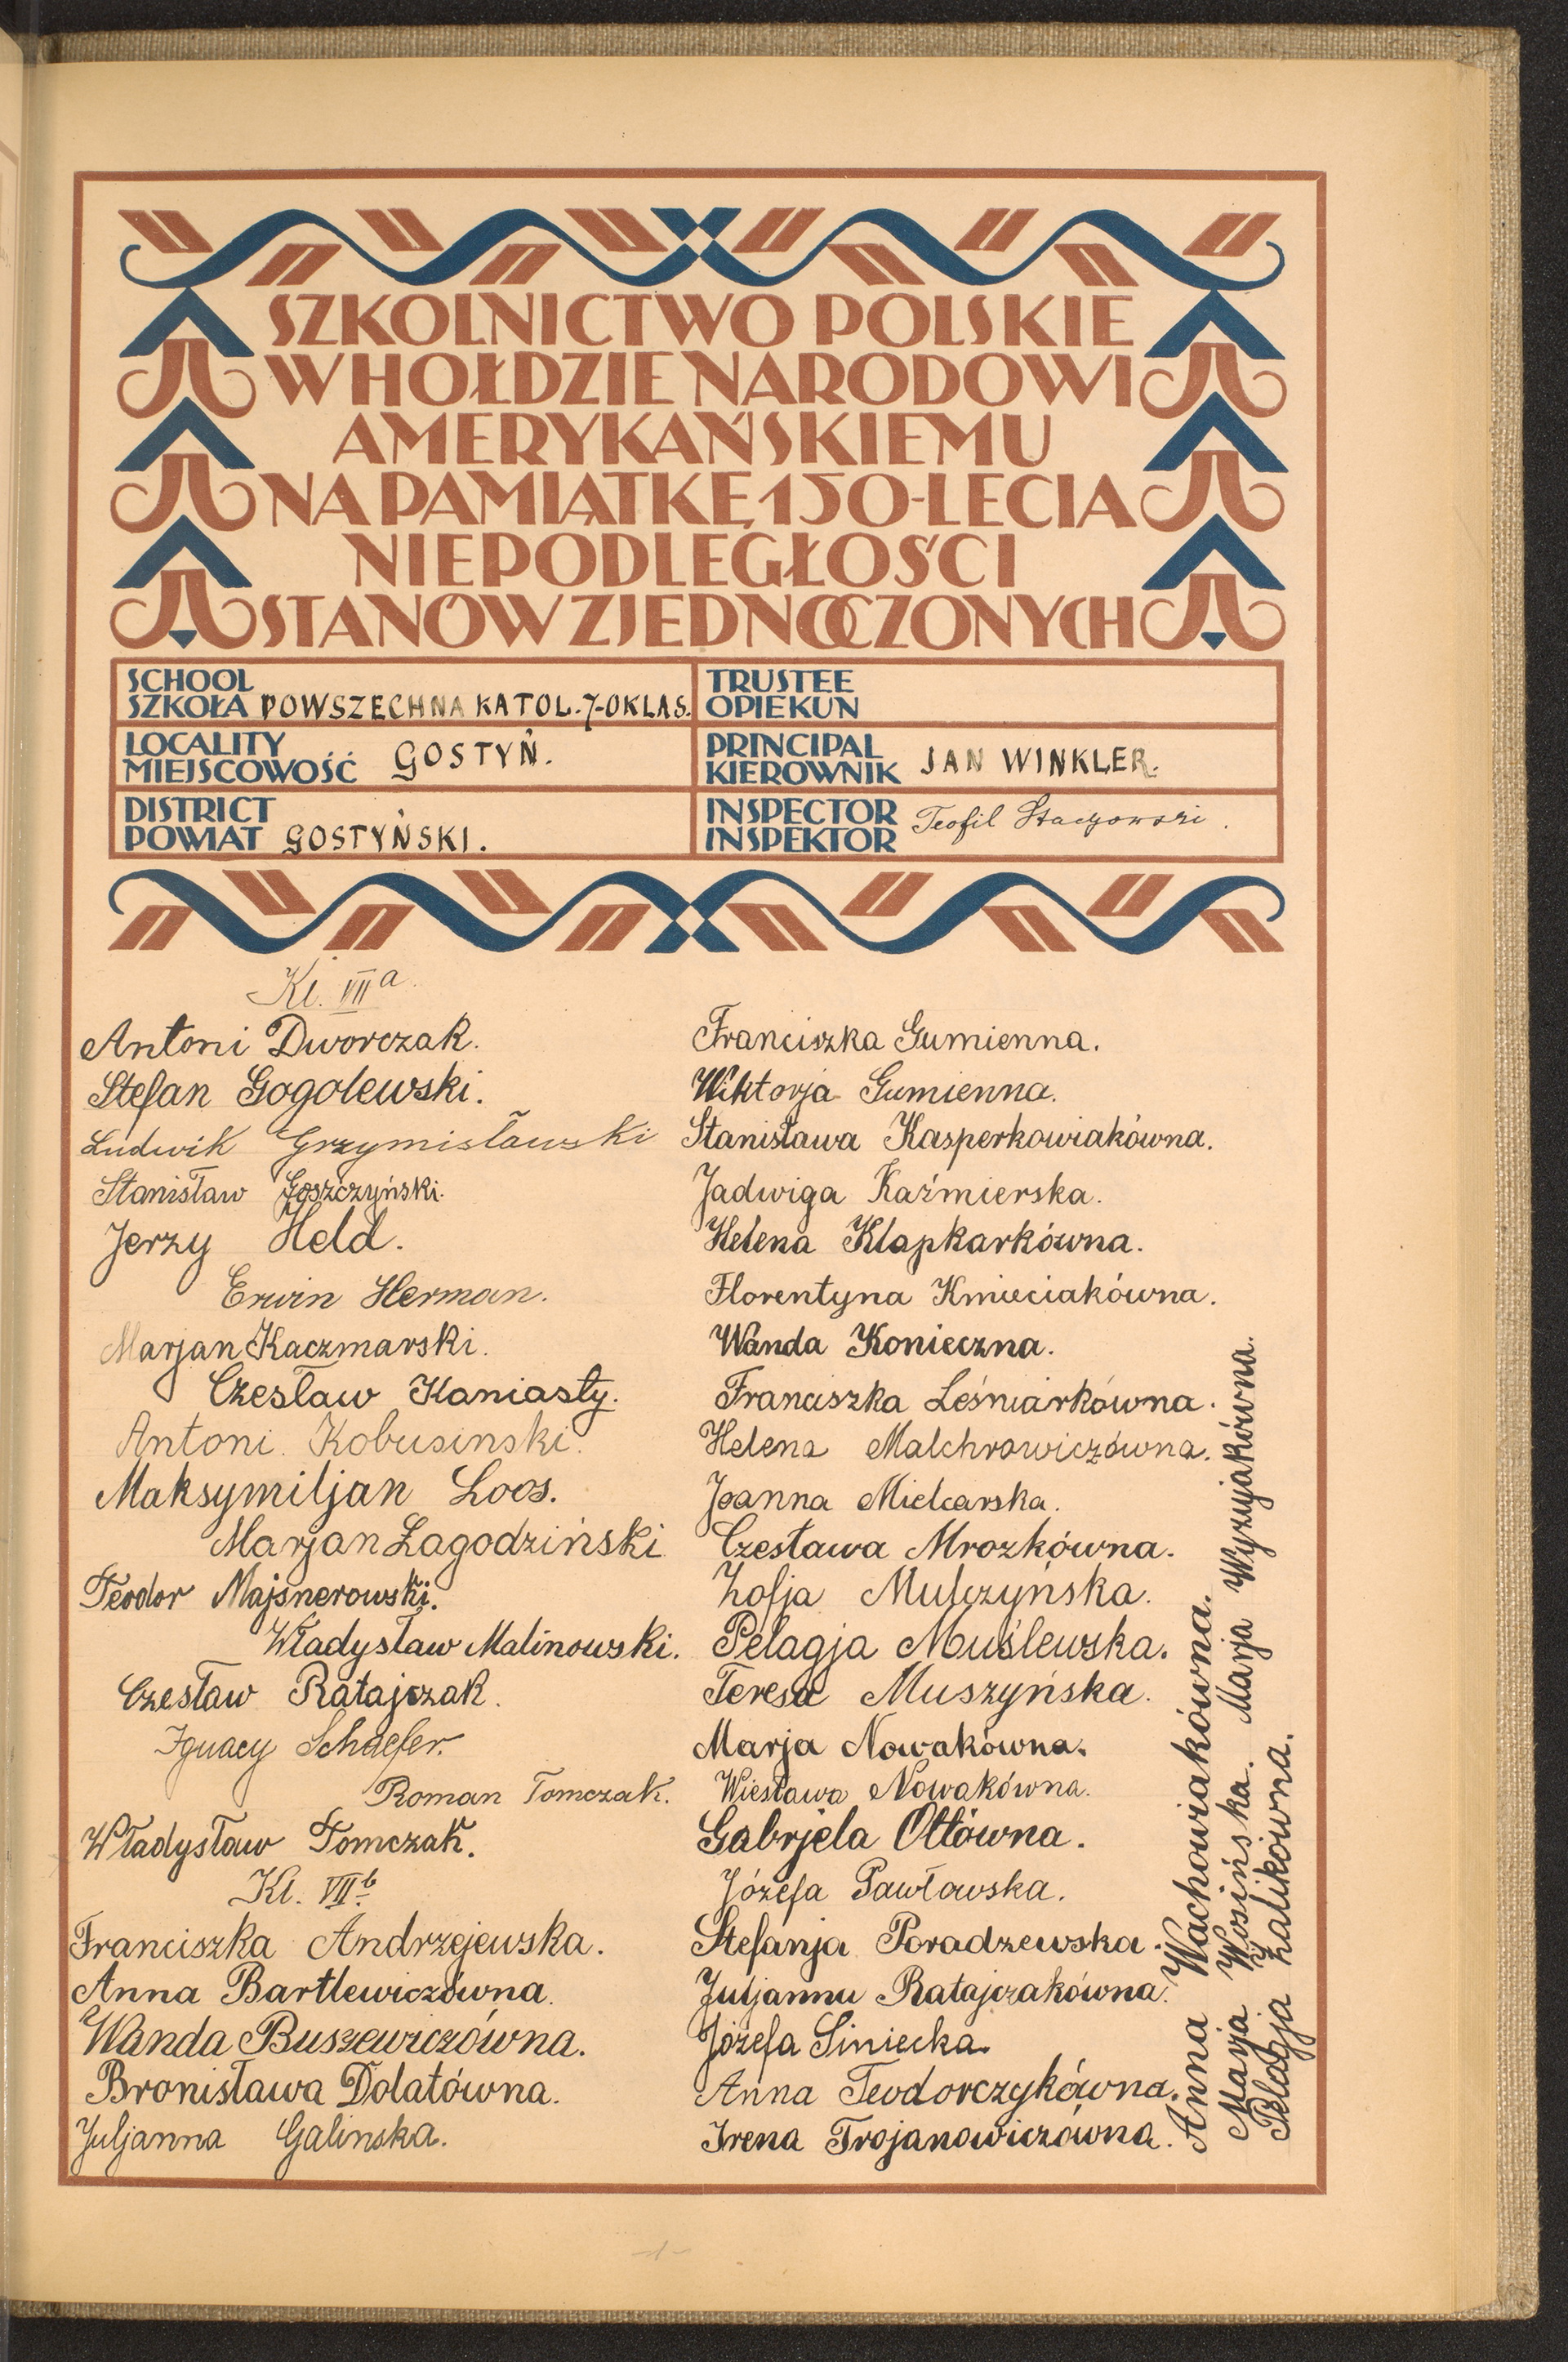 SZKOLNICTWO POLSKIE
W HOŁDZIE NARODOWI
AMERYKAŃSKIEMU
NA PAMIĄTKĘ 150-LECIA
NIEPODLEGŁOŚCI
STANÓW ZJEDNOCZONYCH
SCHOOL
SZKOŁA POWSZECHNA KATOL. 7-OKLAS.
TRUSTEE
OPIEKUN
LOCALITY
MIEJSCOWOŚĆ GOSTYŃ.
PRINCIPAL
KIEROWNIK JAN WINKLER.
DISTRICT
POWIAT GOSTYŃSKI.
INSPECTOR
INSPEKTOR Teofil
Kl. VII a.
Antoni Dworczak.
Stefan Gogolewski.
Ludwik Grzymisławski
Stanisław Goszczyński.
Jerzy Held.
Erwin Herman.
Marjan Kaczmarski.
Czesław Kaniasty.
Antoni Kobusinski.
Maksymiljan Loos.
Marjan Łagodziński
Teodor Majsnerowski.
Władysław Malinowski.
Czesław Ratajczak.
Ignacy Schaefer.
Roman Tomczak.
Władysław Tomczak.
Kl. VII b.
Franciszka Andrzejewska.
Anna Bartlewiczówna.
Wanda Buszewiczówna.
Bronisława Dolatówna.
Juljanna Galinska.
Franciszka Gumienna.
Wiktorja Gumienna.
Stanisława Kasperkowiakówna.
Jadwiga Kaźmierska.
Helena Klapkarkówna.
Florentyna Kmieciakówna.
Wanda Konieczna.
Franciszka Leśniarkówna.
Helena Malchrowiczówna.
Joanna Mielcarska.
Czesława Mrozkówna.
Zofja Mulczyńska.
Pelagja Muślewska.
Teresa Muszyńska.
Marja Nowakówna.
Wiesława Nowakówna.
Gabrjela Ottówna.
Józefa Pawłowska.
Stefanja Poradzewska.
Juljanna Ratajczakówna.
Józefa Siniecka.
Anna Teodorczykówna.
Irena Trojanowiczówna.
Anna Wachowiakówna.
Marja Wosińska. Marja Wyzujakówna.
Pelagja Zalikówna.
-1-